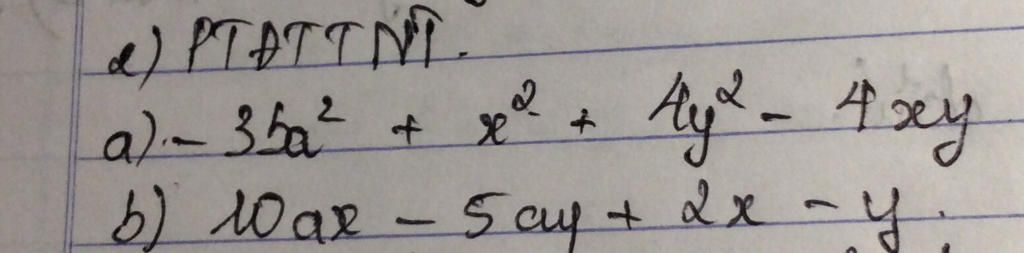 2) PTĐTTNT.
a) - 35a² + x² + 4y² - 4xy
b) 10ax - 5ay + 2x - y.